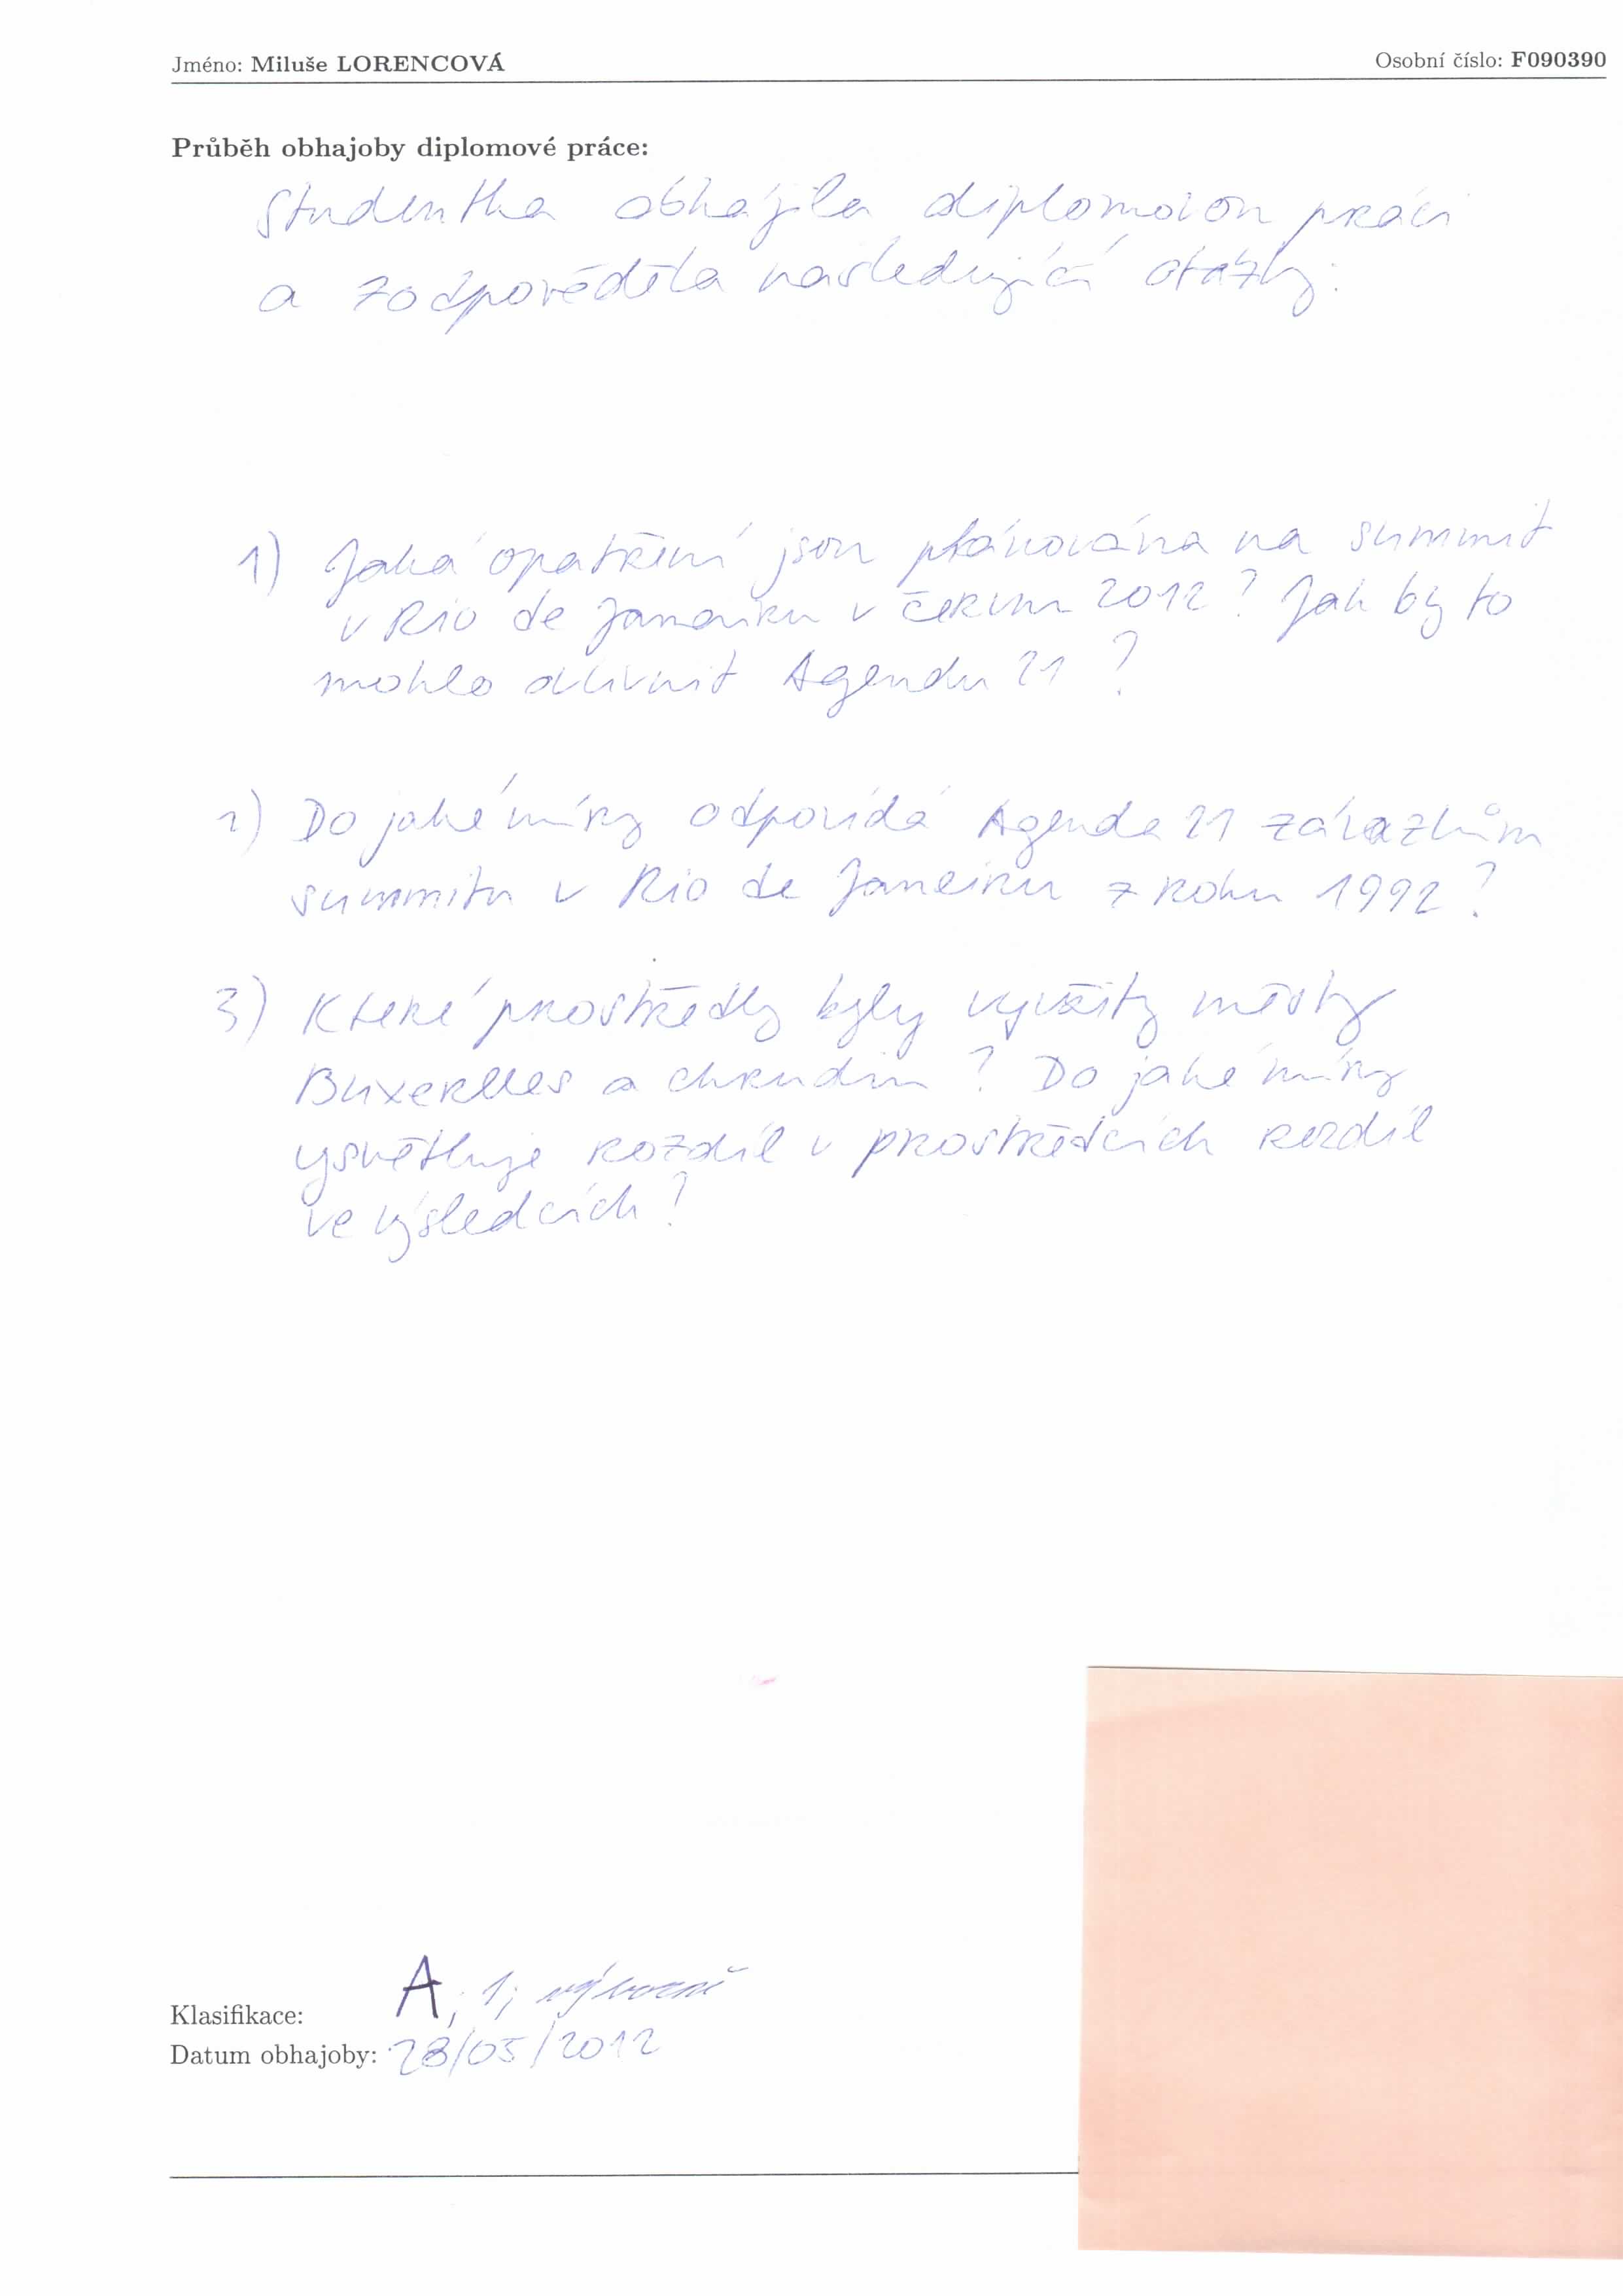 Jméno: Miluše LORENCOVÁ Osobní číslo: F090390
Průběh obhajoby diplomové práce:
Studentka obhájila diplomovou práci
a zodpověděla následující otázky:
1) Jaká opatření jsou plánována na summit
v Rio de Janeiru v červnu 2012? Jak by to
mohlo ovlivnit Agendu 21?
2) Do jaké míry odpovídá Agenda 21 závazkům
summitu v Rio de Janeiru z roku 1992?
3) Které prostředky byly využity městy
Buxerelles a Chrudim? Do jaké míry
vysvětluje rozdíl v prostředcích rozdíl
ve výsledcích?
Klasifikace: A; 1; výborně
Datum obhajoby: 28/05/2012